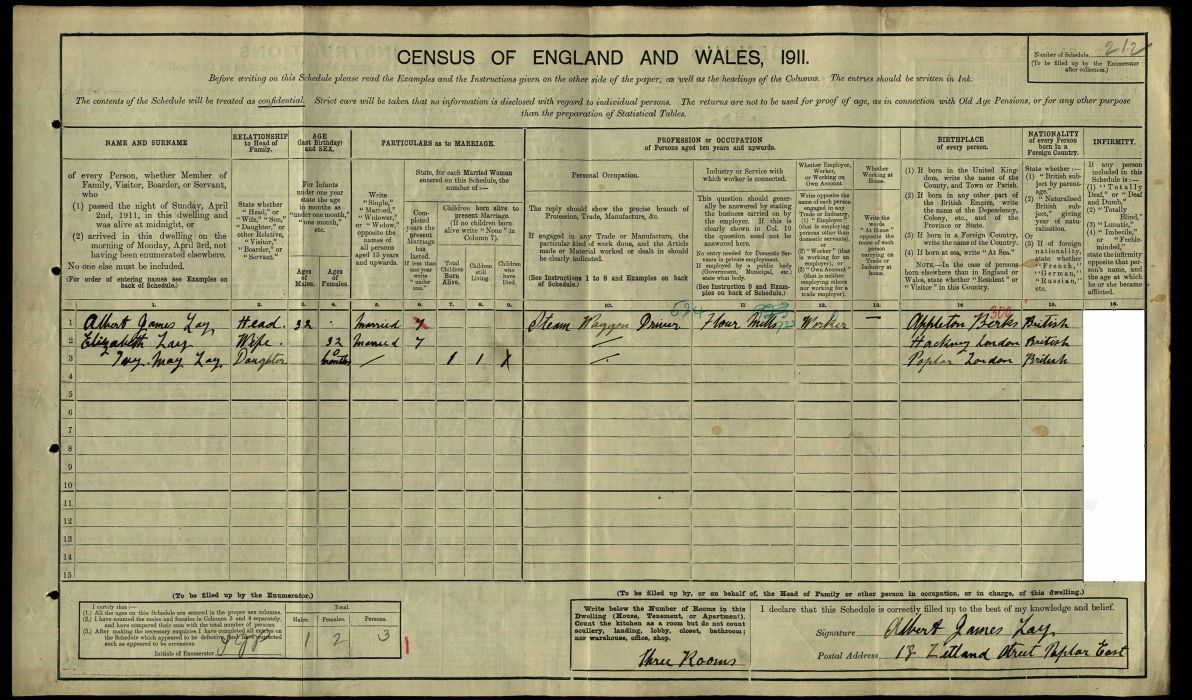 CENSUS OF ENGLAND AND WALES, 1911.
Number of Schedule 212
(To be filled up by the Enumerator
after collection.)
Before writing on this Schedule please read the Examples and the Instructions given on the other side of the paper, as well as the headings of the Columns. The entries should be written in Ink.
The contents of the Schedule will be treated as confidential. Strict care will be taken that no information is disclosed with regard to individual persons. The returns are not to be used for proof of age, as in connection with Old Age Pensions, or for any other purpose
than the preparation of Statistical Tables.
NAME AND SURNAME
of every Person, whether Member of
Family, Visitor, Boarder, or Servant,
who
(1) passed the night of Sunday, April
2nd, 1911, in this dwelling and
was alive at midnight, or
(2) arrived in this dwelling on the
morning of Monday, April 3rd, not
having been enumerated elsewhere.
No one else must be included.
(For order of entering names see Examples on
back of Schedule.)
RELATIONSHIP
to Head of
Family.
State whether
"Head," or
"Wife," "Son,"
"Daughter," or
other Relative,
"Visitor,"
"Boarder," or
"Servant."
AGE
(last Birthday)
and SEX.
For Infants
under one year
state the age
in months as
"under one month,"
"one month,"
etc.
Ages
of
Males.
Ages
of
Females.
PARTICULARS as to MARRIAGE.
Write
"Single,"
"Married,"
"Widower,"
or "Widow,"
opposite the
names of
all persons
aged 15 years
and upwards.
State, for each Married Woman
entered on this Schedule, the
number of:—
Com-
pleted
years the
present
Marriage
has
lasted.
If less than
one year
write
"under
one."
Children born alive to
present Marriage.
(If no children born
alive write "None" in
Column 7).
Total
Children
Born
Alive.
Children
still
Living.
Children
who
have
Died.
PROFESSION or OCCUPATION
of Persons aged ten years and upwards.
Personal Occupation.
The reply should show the precise branch of
Profession, Trade, Manufacture, &c.
If engaged in any Trade or Manufacture, the
particular kind of work done, and the Article
made or Material worked or dealt in should
be clearly indicated.
(See Instructions 1 to 8 and Examples on back
of Schedule.)
Industry or Service with
which worker is connected.
This question should gener-
ally be answered by stating
the business carried on by
the employer. If this is
clearly shown in Col. 10
the question need not be
answered here.
No entry needed for Domestic Ser-
vants in private employment.
If employed by a public body
(Government, Municipal, etc.)
state what body.
(See Instruction 9 and Exam-
ples on back of Schedule.)
Whether Employer,
Worker,
or Working on
Own Account
Write opposite the
name of each person
engaged in any
Trade or Industry,
(1) "Employer"
(that is employing
persons other than
domestic servants),
or
(2) "Worker" (that
is working for an
employer), or
(3) "Own Account"
(that is neither
employing others
nor working for a
trade employer).
Whether
Working at
Home.
Write the
words
"At Home"
opposite the
name of each
person
carrying on
Trade or
Industry at
home.
BIRTHPLACE
of every person.
(1) If born in the United King-
dom, write the name of the
County, and Town or Parish.
(2) If born in any other part of
the British Empire, write
the name of the Dependency,
Colony, etc., and of the
Province or State.
(3) If born in a Foreign Country,
write the name of the Country.
(4) If born at sea, write "At Sea."
NOTE.—In the case of persons
born elsewhere than in England or
Wales, state whether "Resident" or
"Visitor" in this Country.
NATIONALITY
of every Person
born in a
Foreign Country.
State whether:—
(1) "British sub-
ject by parent-
age,"
(2) "Naturalised
British sub-
ject," giving
year of natu-
ralisation.
Or
(3) If of foreign
nationality
state whether
"French,"
"German,"
"Russian,"
etc.
INFIRMITY.
If any person
included in this
Schedule is:—
(1) "Totally
Deaf," or "Deaf
and Dumb,"
(2) "Totally
Blind,"
(3) "Lunatic,"
(4) "Imbecile,"
or "Feeble-
minded,"
state the infirmity
opposite that per-
son's name, and
the age at which
he or she became
afflicted.
1. 2. 3. 4. 5. 6. 7. 8. 9. 10. 11. 12. 13. 14. 15. 16.
1 Albert James Lay Head. 32 Married 7 Steam Waggon Driver Flour Mills Worker — Appleton Berks British
2 Elizabeth Lay Wife. 32 Married 7 Hackney London British
3 Ivy May Lay Daughter months 1 1 X Poplar London British
4
5
6
7
8
9
10
11
12
13
14
15
(To be filled up by the Enumerator.)
I certify that:—
(1.) All the ages on this Schedule are entered in the proper sex columns.
(2.) I have counted the males and females in Columns 3 and 4 separately,
and have compared their sum with the total number of persons.
(3.) After making the necessary enquiries I have completed all entries on
the Schedule which appeared to be defective, and have corrected
such as appeared to be erroneous.
Initials of Enumerator
Total.
Males. Females. Persons.
1 2 3
(To be filled up by, or on behalf of, the Head of Family or other person in occupation, or in charge, of this dwelling.)
Write below the Number of Rooms in this
Dwelling (House, Tenement, or Apartment).
Count the kitchen as a room but do not count
scullery, landing, lobby, closet, bathroom;
nor warehouse, office, shop.
Three Rooms
I declare that this Schedule is correctly filled up to the best of my knowledge and belief.
Signature Albert James Lay
Postal Address 13 Zetland Street Poplar East